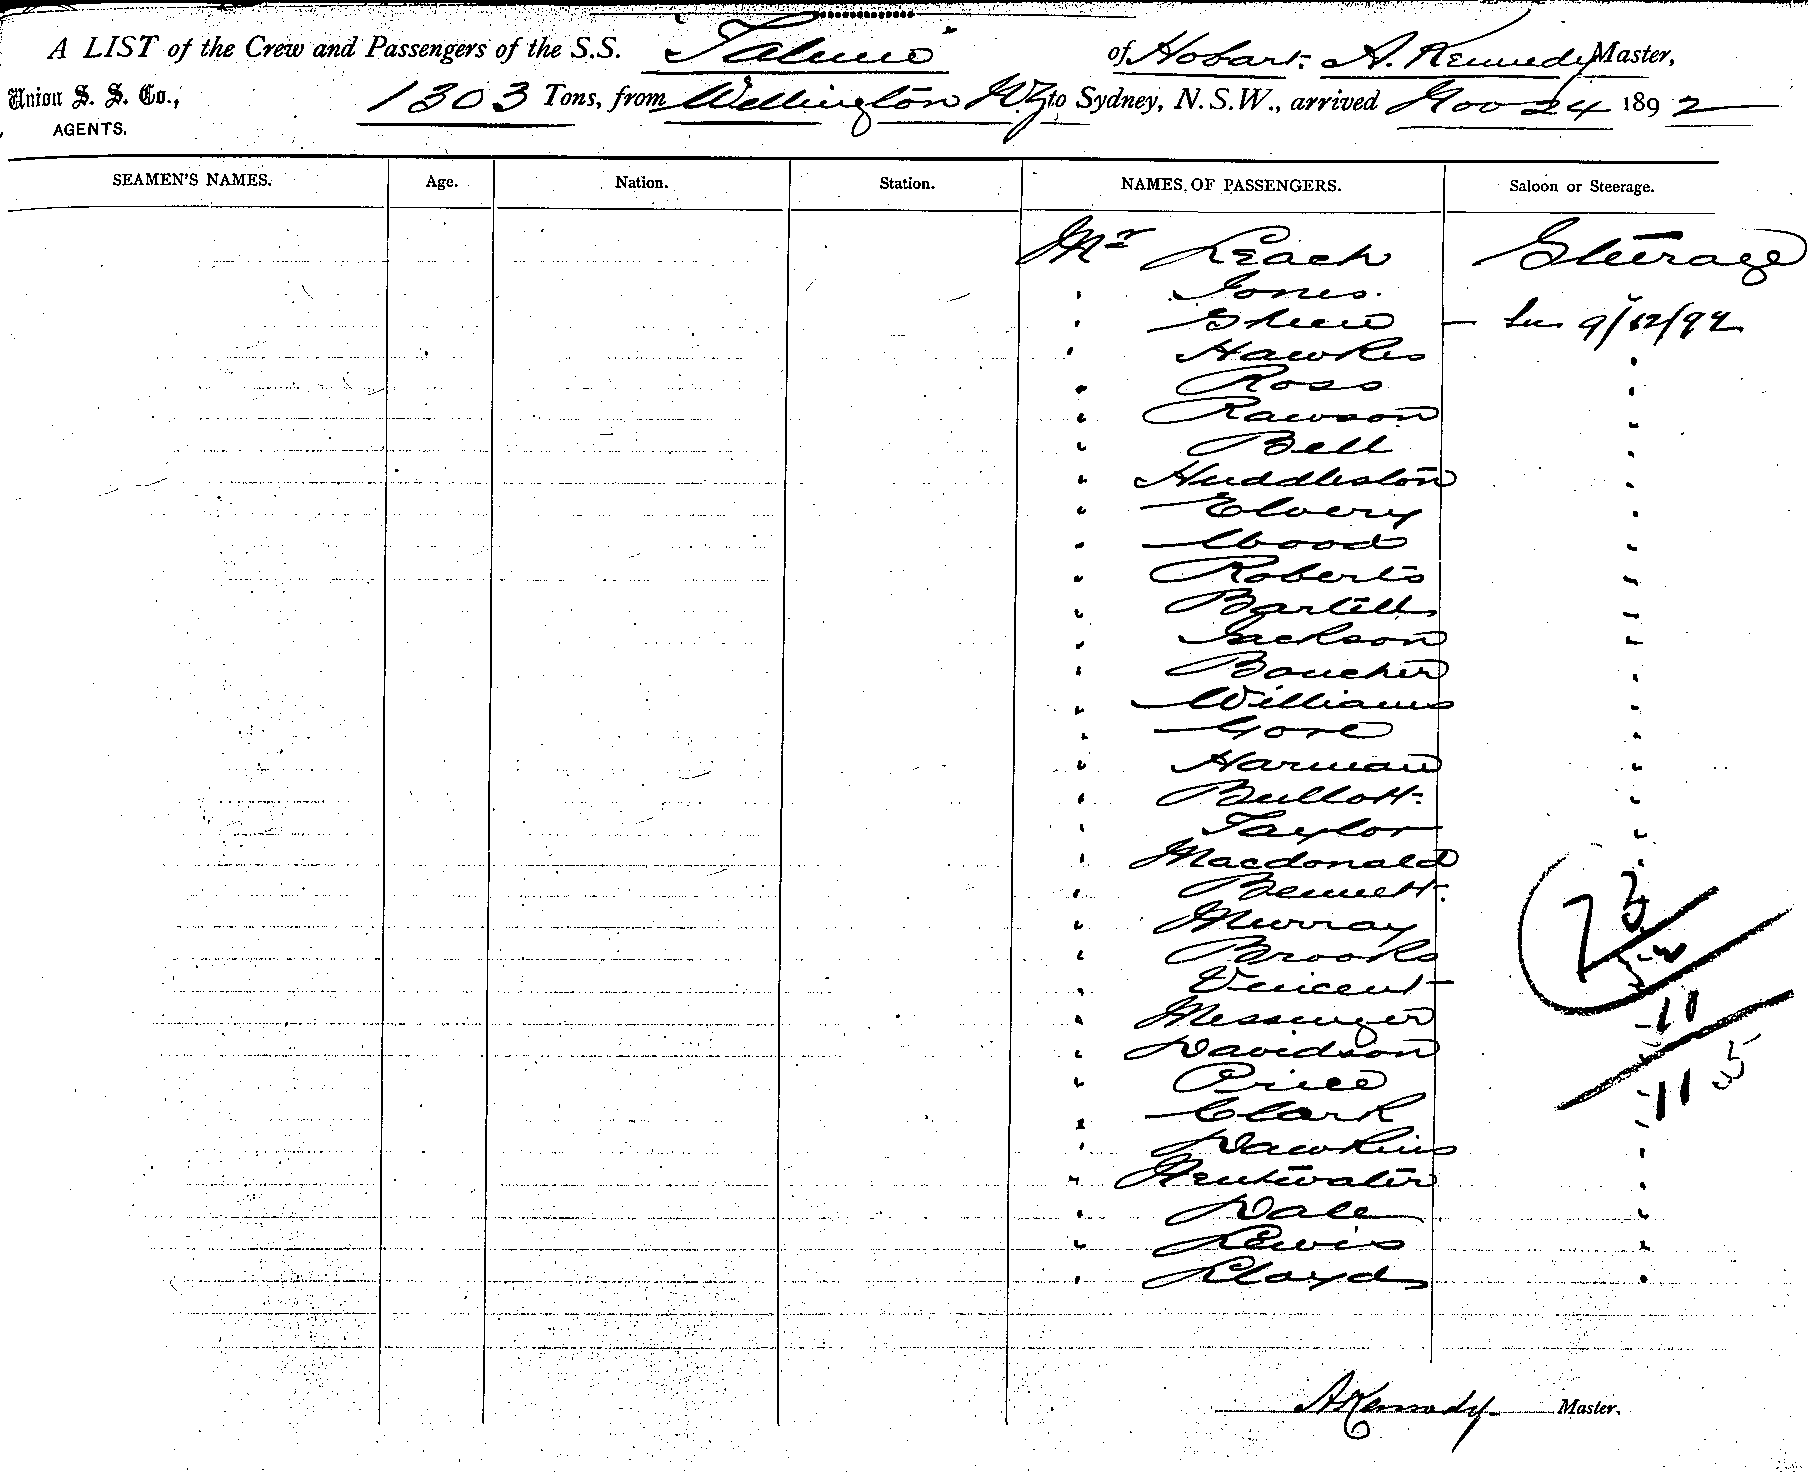 A LIST of the Crew and Passengers of the S.S. "Talune" of Hobart. A. Kennedy Master,
Union S. S. Co., 1303 Tons, from Wellington NZ to Sydney, N.S.W., arrived Nov 24 1892
AGENTS.
SEAMEN'S NAMES. Age. Nation. Station. NAMES OF PASSENGERS. Saloon or Steerage.
Mr Leach Steerage
" Jones.
" — 9/12/92
" Hawkes "
" Ross "
" Rawson "
" Bell "
" Huddleston "
" Elvery "
" Wood "
" Roberts "
" Bartells "
" Jackson "
" Boucher "
" Williams "
" Gore "
" Harman "
" Bullott. "
" Taylor "
" Macdonald "
" Bennett. 73
" Murray
" Brooks "
" Vincent "
" Messenger 11
" Davidson "
" Price 115
" Clark "
" Dawkins "
" "
" Dale "
" Lewis "
" Lloyd "
A Kennedy Master.